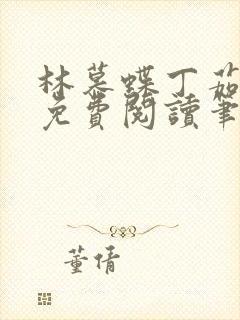 林慕蝶丁茹
免費閱讀筆
董倩